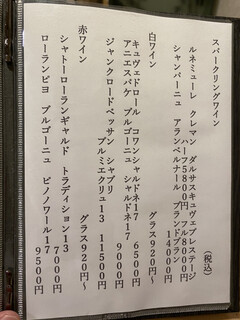 スパークリングワイン
(税込)
ルネミューレ クレマン ダルザスキュヴェプレステージ
ハーフ5800円
シャンパーニュ アランベルナール ブランドブラン
14000円
白ワイン グラス920円~
キュヴェドロール コワンシャルドネ17
6500円
アニエスパケ ブルゴーニュ シャルドネ17
9000円
ジャンクロードベッサン シャブリ
プルミエクリュ13 11500円
赤ワイン グラス920円~
シャトーローランギャルド トラディション13
7000円
ローランピヨ ブルゴーニュ ピノノワール17
9500円